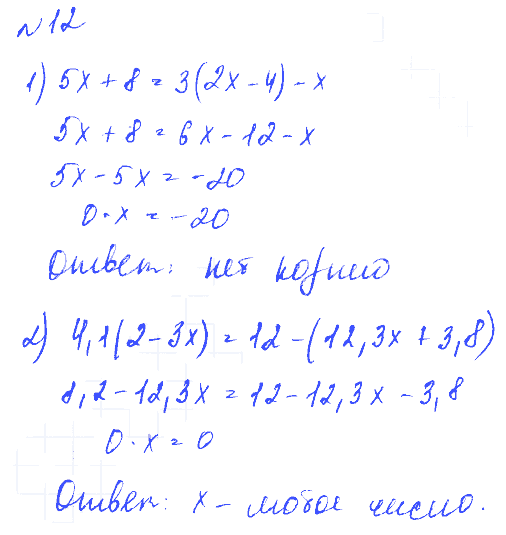 №12
1) 5x + 8 = 3(2x - 4) - x
5x + 8 = 6x - 12 - x
5x - 5x = -20
0·x = -20
Ответ: нет корней
2) 4,1(2 - 3x) = 12 - (12,3x + 3,8)
8,2 - 12,3x = 12 - 12,3x - 3,8
0·x = 0
Ответ: x - любое число.